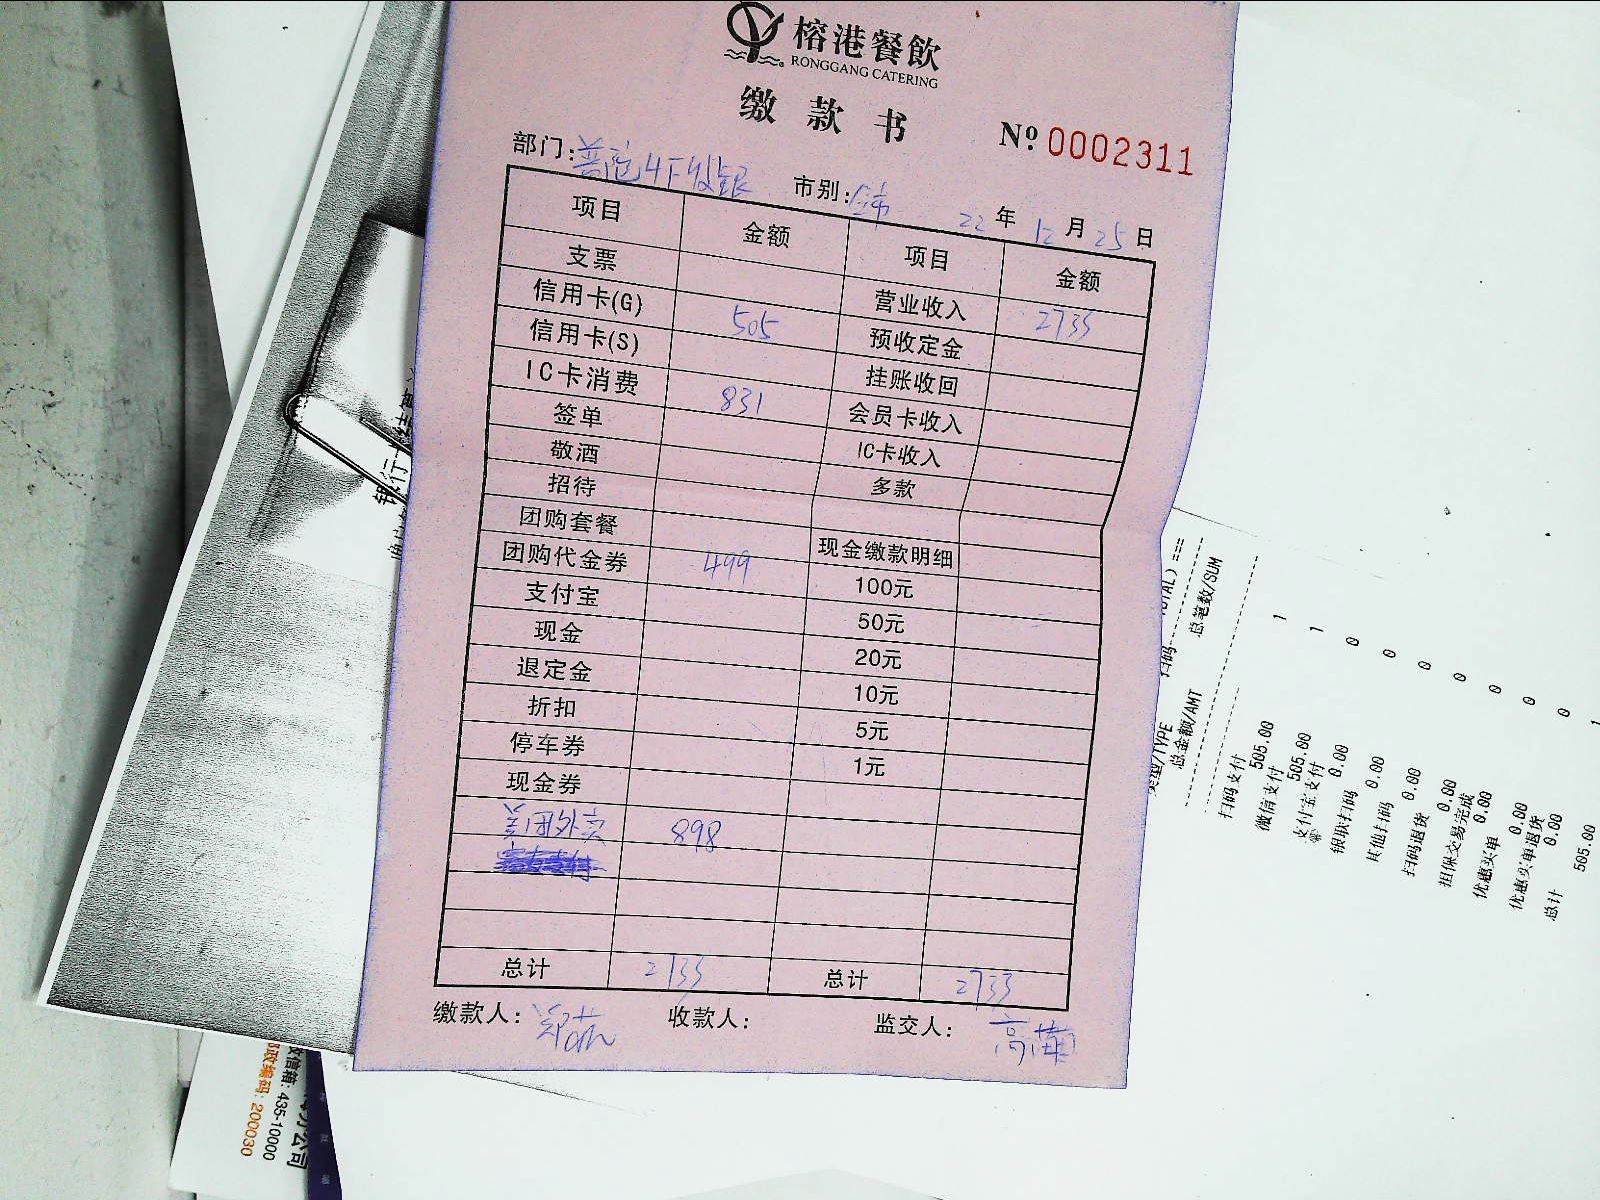 榕港餐飲
RONGGANG CATERING
缴款书
№ 0002311
部门: 市别:
22年12月25日
项目 金额 项目 金额
支票 营业收入 2733
信用卡(G) 505 预收定金
信用卡(S) 挂账收回
IC卡消费 831 会员卡收入
签单 IC卡收入
敬酒 多款
招待
团购套餐 现金缴款明细
团购代金券 499 100元
支付宝 50元
现金 20元
退定金 10元
折扣 5元
停车券 1元
现金券
898
总计 2733 总计 2733
缴款人: 收款人: 监交人:
类型/TYPE 扫码 总笔数/SUM
总金额/AMT
扫码支付 1
505.00
微信支付 1
505.00
支付宝支付 0
0.00
银联扫码 0
0.00
其他扫码 0
0.00
扫码退货 0
0.00
担保交易完成 0
0.00
优惠买单 0
0.00
优惠买单退货 0
0.00
总计 1
505.00
银行
信箱: 435-10000
邮政编码: 200030
分公司